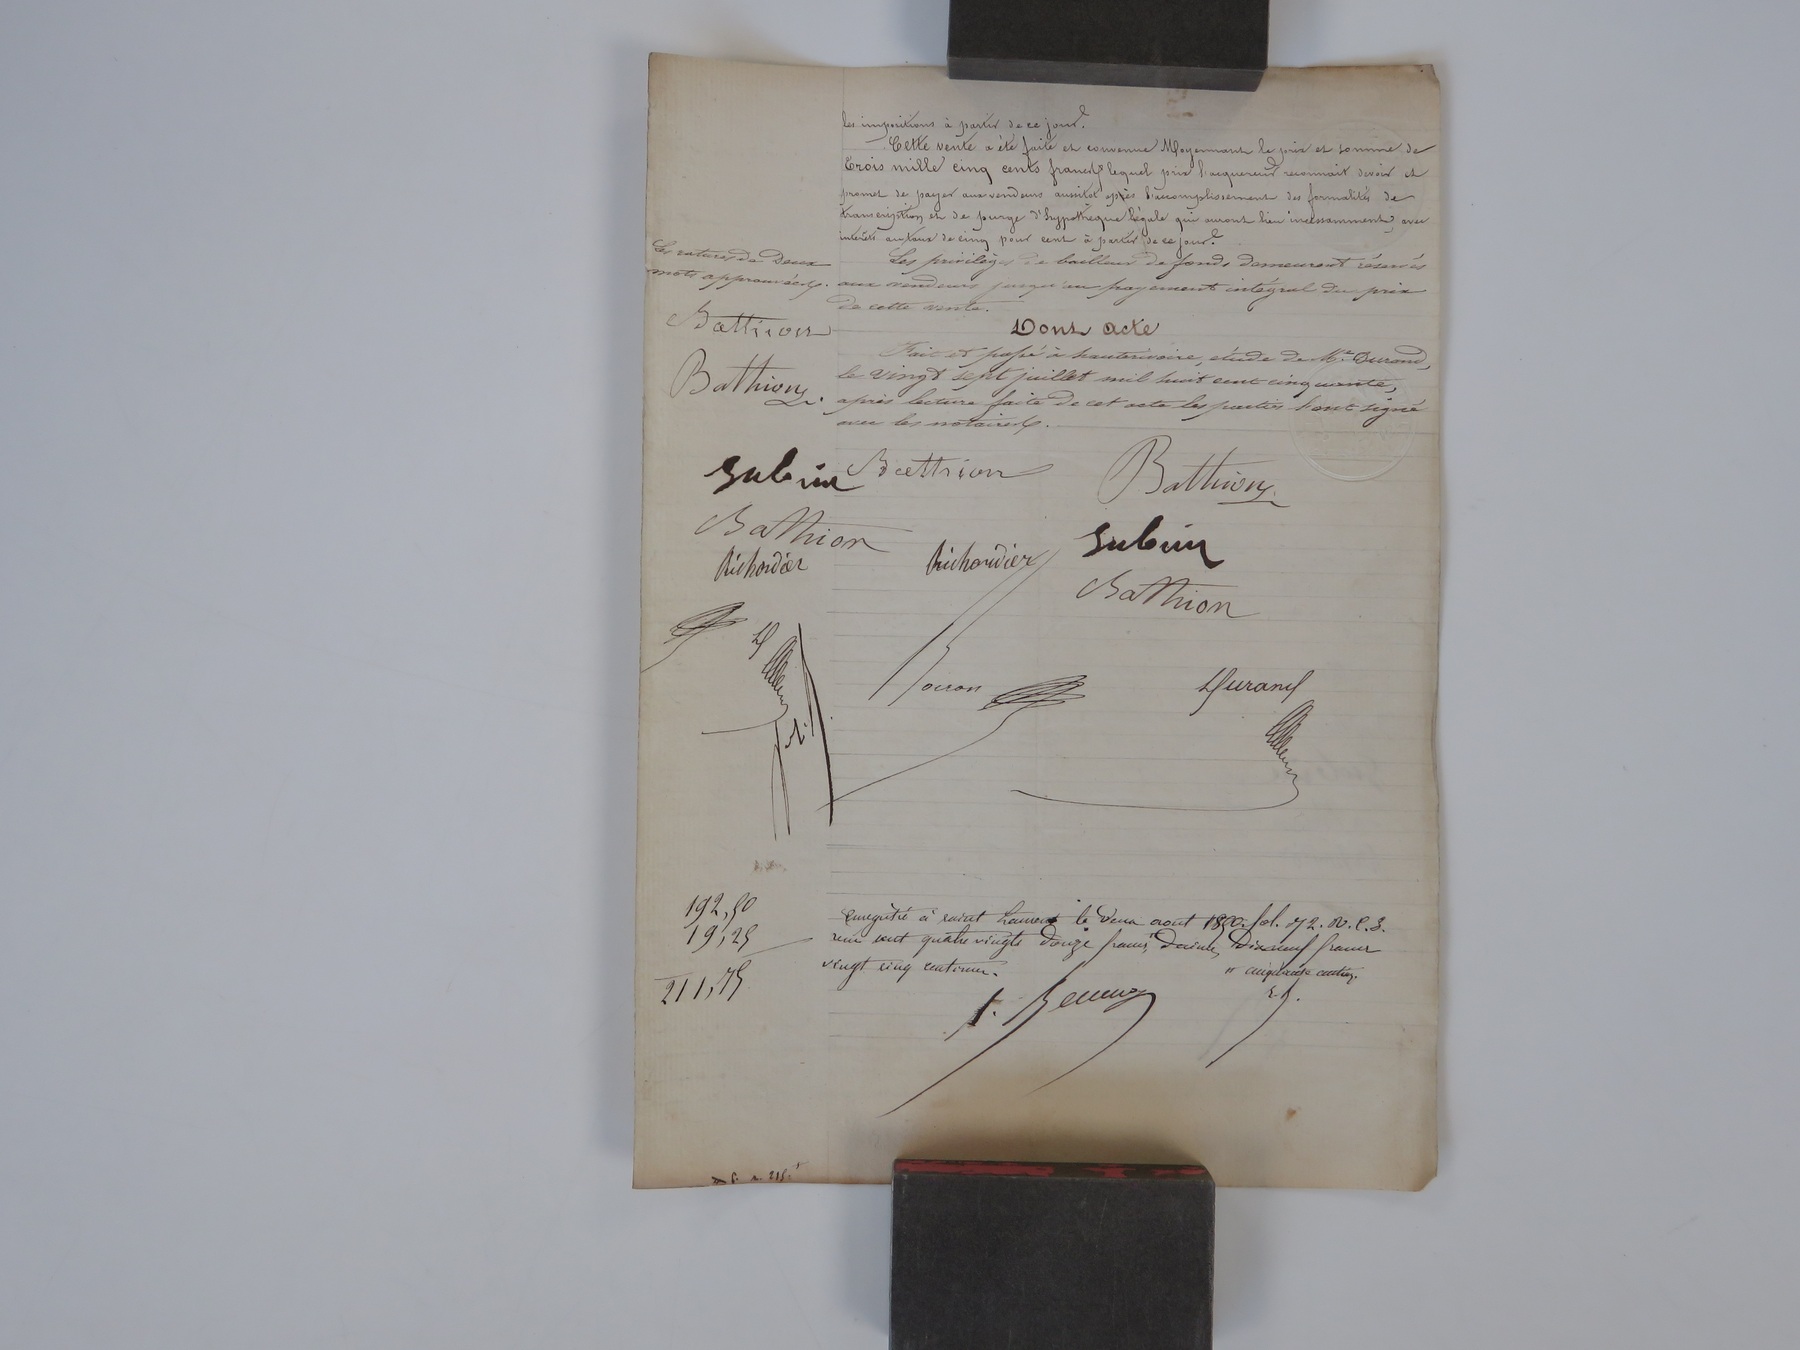 les impositions à partir de ce jour.
Cette vente a été faite et convenue Moyennant le prix et somme de
trois mille cinq cents francs lequel prix l'acquereur reconnait devoir et
promet de payer aux vendeurs aussitot après l'accomplissement des formalités de
transcription et de purge d'hypothèque légale qui auront lieu incessamment, avec
intérêts au taux de cinq pour cent à partir de ce jour.
Les privilèges de bailleur de fonds demeurent réservés
aux vendeurs jusqu'au payement intégral du prix
de cette vente.
Les ratures de Deux
mots approuvées.
Bathion
Bathion
Dont acte
Fait et passé à hauterivoire, étude de Me Durand,
le vingt sept juillet mil huit cent cinquante,
après lecture faite de cet acte les parties l'ont signé
avec les notaires.
Subrin Bathion Bathion
Bathion
Richardier Richardier Subrin
Bathion
Durand
192,50
19,25
211,75
Enregistré à saint Laurent le deux aout 1850. fol. 72. V. C. 3.
reçu cent quatre vingts douze francs, decime dixneuf francs
vingt cinq centimes.
cinquante centimes.